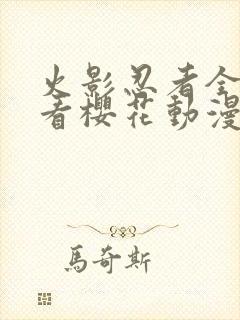 火影忍者全
看櫻花動漫
馬奇斯